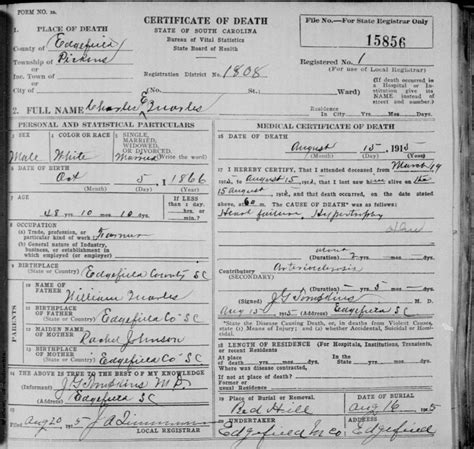 FORM NO.
CERTIFICATE OF DEATH
STATE OF SOUTH CAROLINA
Bureau of Vital Statistics
State Board of Health
File No.—For State Registrar Only
15856
1. PLACE OF DEATH
County of Edgefield
Township of Pickens
Inc. Town of
City of
Registration District No. 1808
Registered No. 1
(For use of Local Registrar)
(No. St.; Ward)
(If death occurred in a Hospital or Institution give its NAME instead of street and number.)
2. FULL NAME Charles Quarles
Residence In City Yrs. Mos. Days
PERSONAL AND STATISTICAL PARTICULARS
3 SEX
Male
4 COLOR OR RACE
White
5 SINGLE, MARRIED, WIDOWED, OR DIVORCED
(Write the word)
6 DATE OF BIRTH
Oct 5, 1866
(Month) (Day) (Year)
7 AGE
48 yrs 10 mos 10 dys
If LESS than 1 day
hrs. or min.
8 OCCUPATION
(a) Trade, profession, or particular kind of work Farmer
(b) General nature of Industry, business, or establishment in which employed (or employer)
9 BIRTHPLACE
(State or Country) Edgefield County SC
PARENTS
10 NAME OF FATHER
William Quarles
11 BIRTHPLACE OF FATHER
(State or Country) Edgefield Co SC
12 MAIDEN NAME OF MOTHER
Johnson
13 BIRTHPLACE OF MOTHER
(State or Country) Edgefield Co SC
14 THE ABOVE IS TRUE TO THE BEST OF MY KNOWLEDGE
(Informant) J G Tompkins M D
(Address) Edgefield SC
15
Filed Aug 20 1915 J A
LOCAL REGISTRAR
MEDICAL CERTIFICATE OF DEATH
16 DATE OF DEATH
August 15, 1915
(Month) (Day) (Year)
17 I HEREBY CERTIFY, That I attended deceased from March 49
to August 15, 191 , that I last saw him alive on the
15 August, 191 , and that death occurred, on the date stated
above, at 6 m. The CAUSE OF DEATH* was as follows:
Hypertrophy
Contributory
(SECONDARY)
Duration yrs. mos. days
(Signed) J G Tompkins M. D.
Aug 15 1915 (Address) Edgefield SC
*State the Disease Causing Death, or, in deaths from Violent Causes, state (1) Means of Injury; and (2) whether Accidental, Suicidal or Homicidal.
18 LENGTH OF RESIDENCE (For Hospitals, Institutions, Transients, or recent Residents
At place of death yrs. mos. days State yrs. mos. days
Where was disease contracted,
If not at place of death?
Former or usual Residence
19 Place of Burial or Removal
Red Hill
DATE OF BURIAL
Aug 16 1915
20 UNDERTAKER
Edgefield Co
ADDRESS
Edgefield